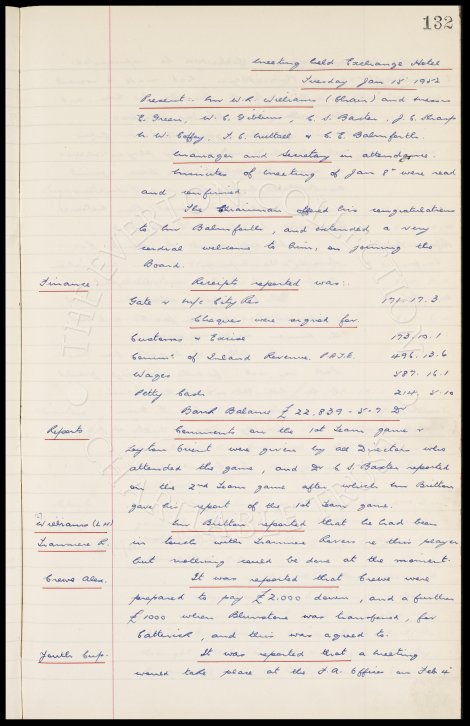 132
Meeting held Exchange Hotel
Tuesday Jan 15' 1952
Present:- Mr W.R. Williams (Chair) and Messrs
E. Green, W.C. Gibbins, C.S. Baxter, J.C. Sharp
N.W. Coffey, F.E. Nuttall & C.E. Balmforth.
Manager and Secretary in attendance.
Minutes of Meeting of Jan 8th were read
and confirmed.
The Chairman offered his congratulations
to Mr Balmforth, and extended a very
cordial welcome to him, on joining the
Board.
Finance. Receipts reported was:-
Gate v M/c City Res 171-17.3
Cheques were signed for
Customs & Excise 173/10.1
Commrs of Inland Revenue P.A.Y.E. 496.13.6
Wages 587.16.1
Petty Cash 214. 5.10
Bank Balance £22,839-5-7 Dr
Reports Comments on the 1st Team game v
Leyton Orient were given by all Directors who
attended the game, and Dr C.S. Baxter reported
on the 2nd Team game after which Mr Britton
gave his report of the 1st Team game.
Williams (L.H) Mr Britton reported that he had been
Tranmere R. in touch with Tranmere Rovers re this player
but nothing could be done at the moment.
Crewe Alex. It was reported that Crewe were
prepared to pay £2,000 down, and a further
£1000 when Blunstone was transferred, for
Catterick, and this was agreed to.
Youth Cup. It was reported that a Meeting
would take place at the F.A. Offices on Feb 4th
THE EVERTON COLLECTION
CHARITABLE TRUST